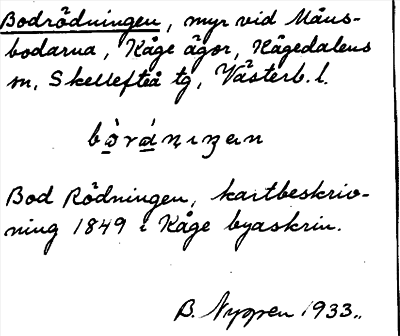 Bodrödningen, myr vid Måns-
bodarna, Kåge ägor, Kågedalens
sn, Skellefteå tg, Västerb. l.
Bod Rödningen, kartbeskriv-
ning 1849 i Kåge byaskrin.
B. Nygren 1933.